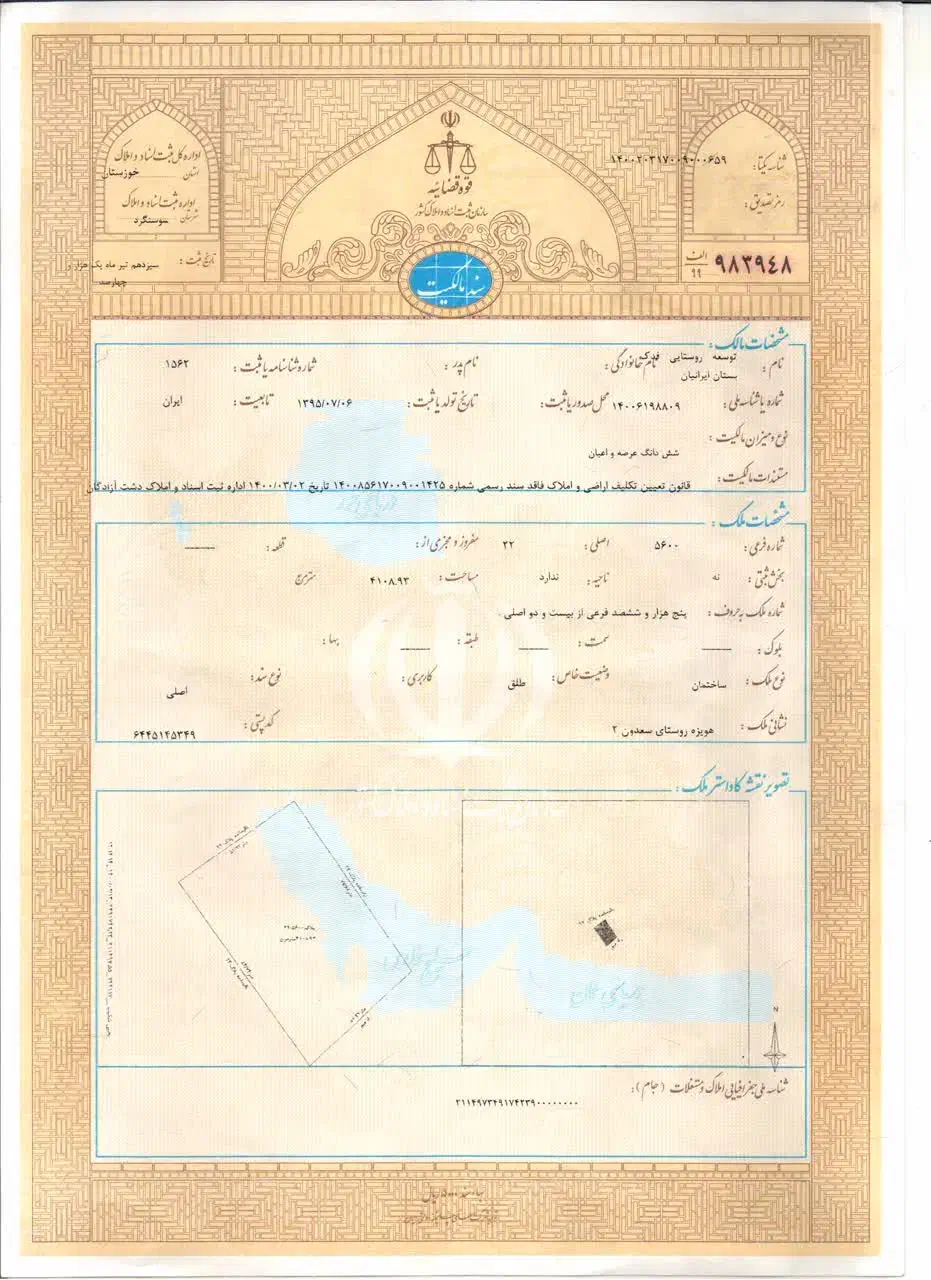 قوه قضائیه
سازمان ثبت اسناد و املاک کشور
سند مالکیت
شناسه یکتا: ۱۴۰۰۲۰۳۱۷۰۰۹۰۰۰۶۵۹
رمز تصدیق:
الف ۹۹ ۹۸۳۹۴۸
اداره کل ثبت اسناد و املاک
استان خوزستان
اداره ثبت اسناد و املاک
شهرستان سوسنگرد
تاریخ ثبت: سیزدهم تیر ماه یک هزار و
چهارصد
مشخصات مالک:
نام: توسعه روستایی فدک نام خانوادگی: نام پدر: شماره شناسنامه یا ثبت: ۱۵۶۲
بستان ایرانیان
شماره یا شناسه ملی: ۱۴۰۰۶۱۹۸۸۰۹ محل صدور یا ثبت: تاریخ تولد یا ثبت: ۱۳۹۵/۰۷/۰۶ تابعیت: ایران
نوع و میزان مالکیت:
شش دانگ عرصه و اعیان
مستندات مالکیت: قانون تعیین تکلیف اراضی و املاک فاقد سند رسمی شماره ۱۴۰۰۸۵۶۱۷۰۰۹۰۰۱۴۲۵ تاریخ ۱۴۰۰/۰۳/۰۲ اداره ثبت اسناد و املاک دشت آزادگان
مشخصات ملک:
شماره فرعی: ۵۶۰۰ اصلی: ۲۲ مفروز و مجزی از: قطعه:
بخش ثبتی: نه ناحیه: ندارد مساحت: ۴۱۰۸.۹۳ مترمربع
شماره ملک به حروف: پنج هزار و ششصد فرعی از بیست و دو اصلی .
بلوک: سمت: طبقه: بها:
نوع ملک: ساختمان وضعیت خاص: طلق کاربری: نوع سند: اصلی
نشانی ملک: هویزه روستای سعدون ۲ کد پستی: ۶۴۴۵۱۴۵۳۴۹
تصویر نقشه کاداستر ملک:
دریای خزر
خلیج فارس
دریای عمان
N
شناسه ملی جغرافیایی املاک و مستغلات (جام):
۲۱۱۴۹۷۳۴۹۱۷۴۲۳۹۰۰۰۰۰۰۰۰